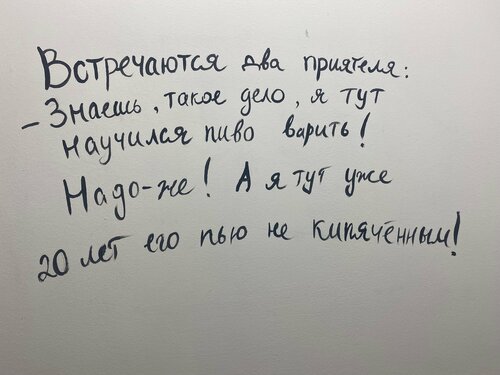 Встречаются два приятеля:
- Знаешь, такое дело, я тут
научился пиво варить!
Надо-же! А я тут уже
20 лет его пью не кипячённым!